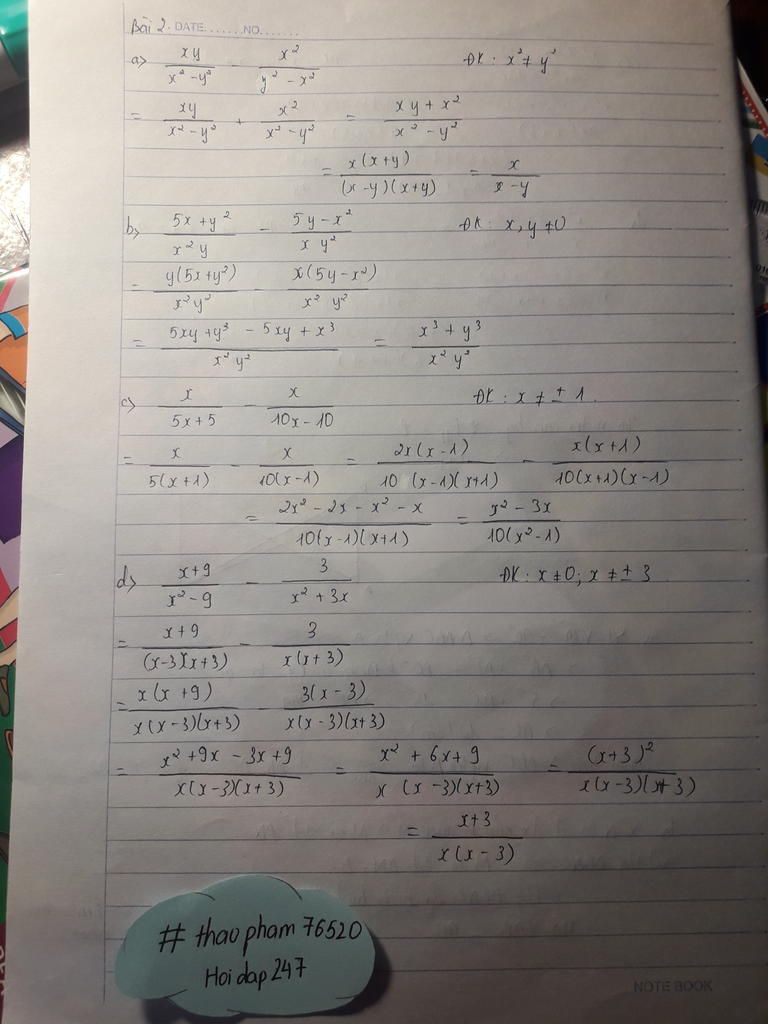 Bài 2. DATE.......NO.......
a> xy/(x² - y²) - x²/(y² - x²) ĐK: x² ≠ y²
= xy/(x² - y²) + x²/(x² - y²) = (xy + x²)/(x² - y²)
= x(x+y)/((x-y)(x+y)) = x/(x-y)
b> (5x + y²)/(x²y) - (5y - x²)/(xy²) ĐK: x, y ≠ 0
= y(5x+y²)/(x²y²) - x(5y-x²)/(x²y²)
= (5xy + y³ - 5xy + x³)/(x²y²) = (x³ + y³)/(x²y²)
c> x/(5x+5) - x/(10x-10) ĐK: x ≠ ± 1.
= x/(5(x+1)) - x/(10(x-1)) = 2x(x-1)/(10(x-1)(x+1)) - x(x+1)/(10(x+1)(x-1))
= (2x² - 2x - x² - x)/(10(x-1)(x+1)) = (x² - 3x)/(10(x²-1))
d> (x+9)/(x²-9) - 3/(x²+3x) ĐK: x ≠ 0; x ≠ ± 3
= (x+9)/((x-3)(x+3)) - 3/(x(x+3))
= x(x+9)/(x(x-3)(x+3)) - 3(x-3)/(x(x-3)(x+3))
= (x² + 9x - 3x + 9)/(x(x-3)(x+3)) = (x² + 6x + 9)/(x(x-3)(x+3)) = (x+3)²/(x(x-3)(x+3))
= (x+3)/(x(x-3))
# thao pham 76520
Hoi dap 247
NOTE BOOK